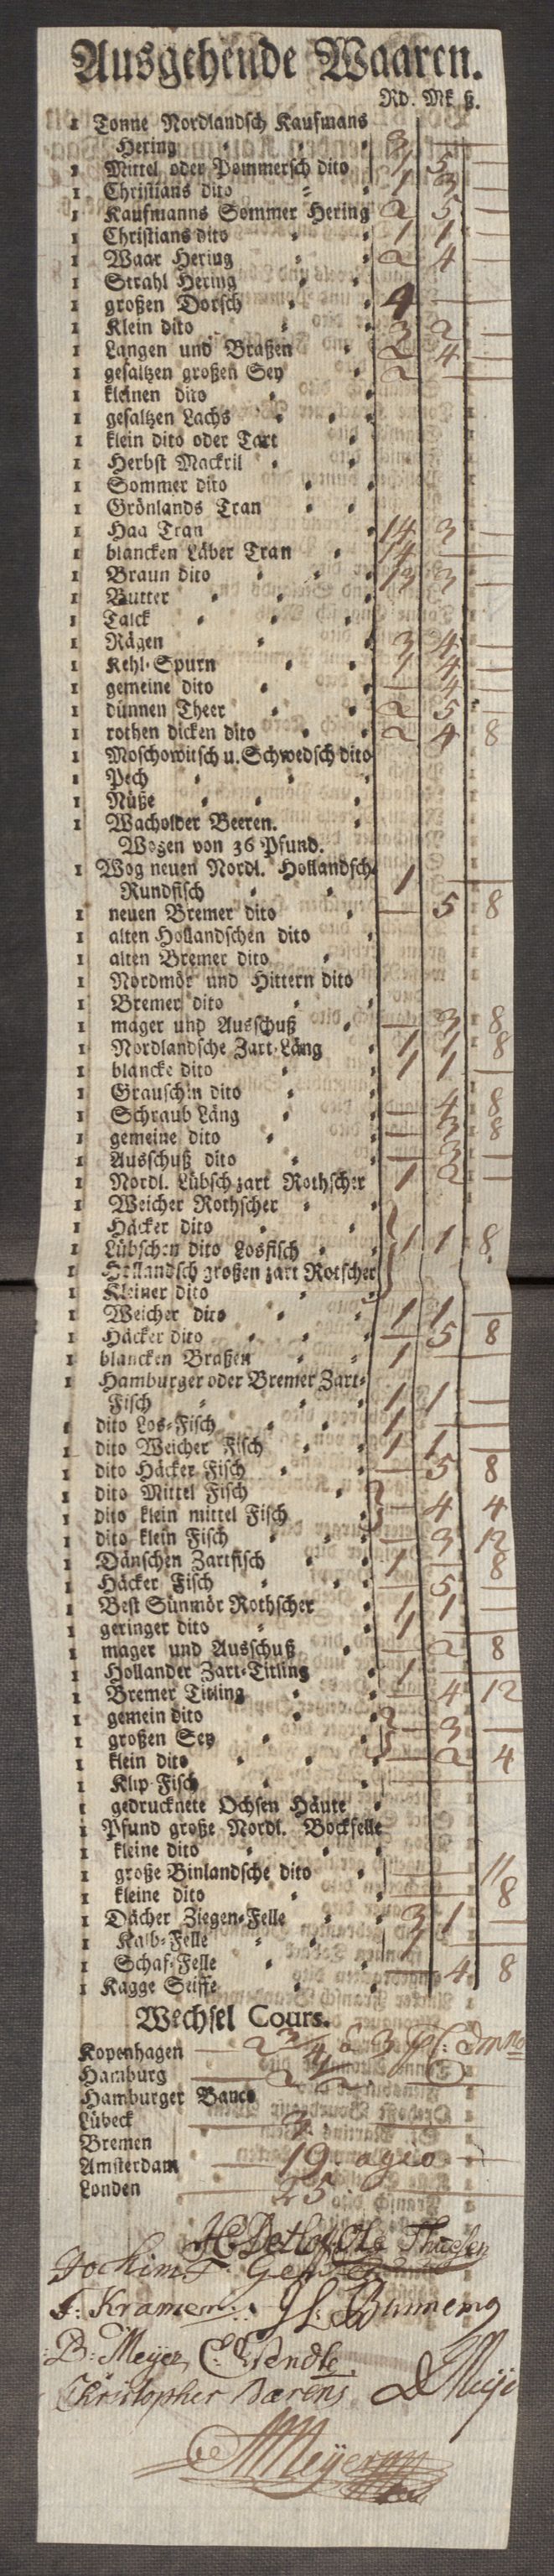 Ausgehende Waaren.
Rd. Mk ß.
1 Tonne Nordlandsch Kaufmans
Hering 3 —
1 Mittel oder Pommersch dito 5 —
1 Christians dito 1 3 —
1 Kaufmanns Sommer Hering 2 5 —
1 Christians dito 1 1 —
1 Waar Hering 2 4 —
1 Strahl Hering
1 großen Dorsch 4 —
1 Klein dito 3 2 —
1 Langen und Braßen 2 4 —
1 gesaltzen großen Sey 2 —
1 kleinen dito
1 gesaltzen Lachs
1 klein dito oder Tart
1 Herbst Mackril
1 Sommer dito
1 Grönlands Tran
1 Haa Tran 14 3 —
1 blancken Läber Tran 14 —
1 Braun dito 13 3 —
1 Butter
1 Talck
1 Rägen 3 4 —
1 Kehl-Spurn 1 4 —
1 gemeine dito — 4 —
1 dünnen Theer 2 5 —
1 rothen dicken dito 2 4 8
1 Moschowitsch u. Schwedsch dito
1 Pech
1 Nüße
1 Wacholder Beeren.
Wogen von 36 Pfund.
1 Wog neuen Nordl. Hollandsch
Rundfisch 1 —
1 neuen Bremer dito — 5 8
1 alten Hollandschen dito
1 alten Bremer dito
1 Nordmör und Hittern dito
1 Bremer dito
1 mager und Ausschuß — 3 8
1 Nordlandsche Zart-Läng 1 1 8
1 blancke dito 1 1 —
1 Grauschin dito
1 Schraub Läng — 4 8
1 gemeine dito — 3 8
1 Ausschuß dito — 3 —
1 Nordl. Lübsch zart Rothscher 1 2 —
1 Weicher Rothscher
1 Häcker dito
1 Lübschen dito Losfisch 1 1 8
1 Hollandsch großen zart Rotscher
1 Kleiner dito
1 Weicher dito 1 1 —
1 Häcker dito — 5 8
1 blancken Braßen 1 —
1 Hamburger oder Bremer Zart-
Fisch 1 1 —
1 dito Los-Fisch 1 —
1 dito Weicher Fisch 1 1 —
1 dito Häcker Fisch — 5 8
1 dito Mittel Fisch
1 dito klein mittel Fisch — 4 4
1 dito klein Fisch — 3 12
1 Dänschen Zartfisch 1 — 8
1 Häcker Fisch — 5 —
1 Best Sünmör Rothscher 1 1 —
1 geringer dito 1 —
1 mager und Ausschuß — 2 8
1 Hollander Zart-Titling 1 —
1 Bremer Titling — 4 12
1 gemein dito — 3 —
1 großen Sey
1 klein dito — 2 4
1 Klip-Fisch
1 gedrucknete Ochsen Häute
1 Pfund große Nordl. Bockfelle
1 kleine dito
1 große Binlandsche dito — 11
1 kleine dito — 8
1 Dächer Ziegen-Felle 3 1 —
1 Kalb-Felle 1 —
1 Schaf-Felle — 4 8
1 Kagge Seiffe
Wechsel Cours.
Kopenhagen — 2 3/4 à 3
Hamburg
Hamburger Banco
Lübeck 3
Bremen
Amsterdam 19. agio
Londen 25
Thuesen
Jochim F.
F: Kramer
B: Meyer C. Wendte D Meije
Christopher Barens
Meijer